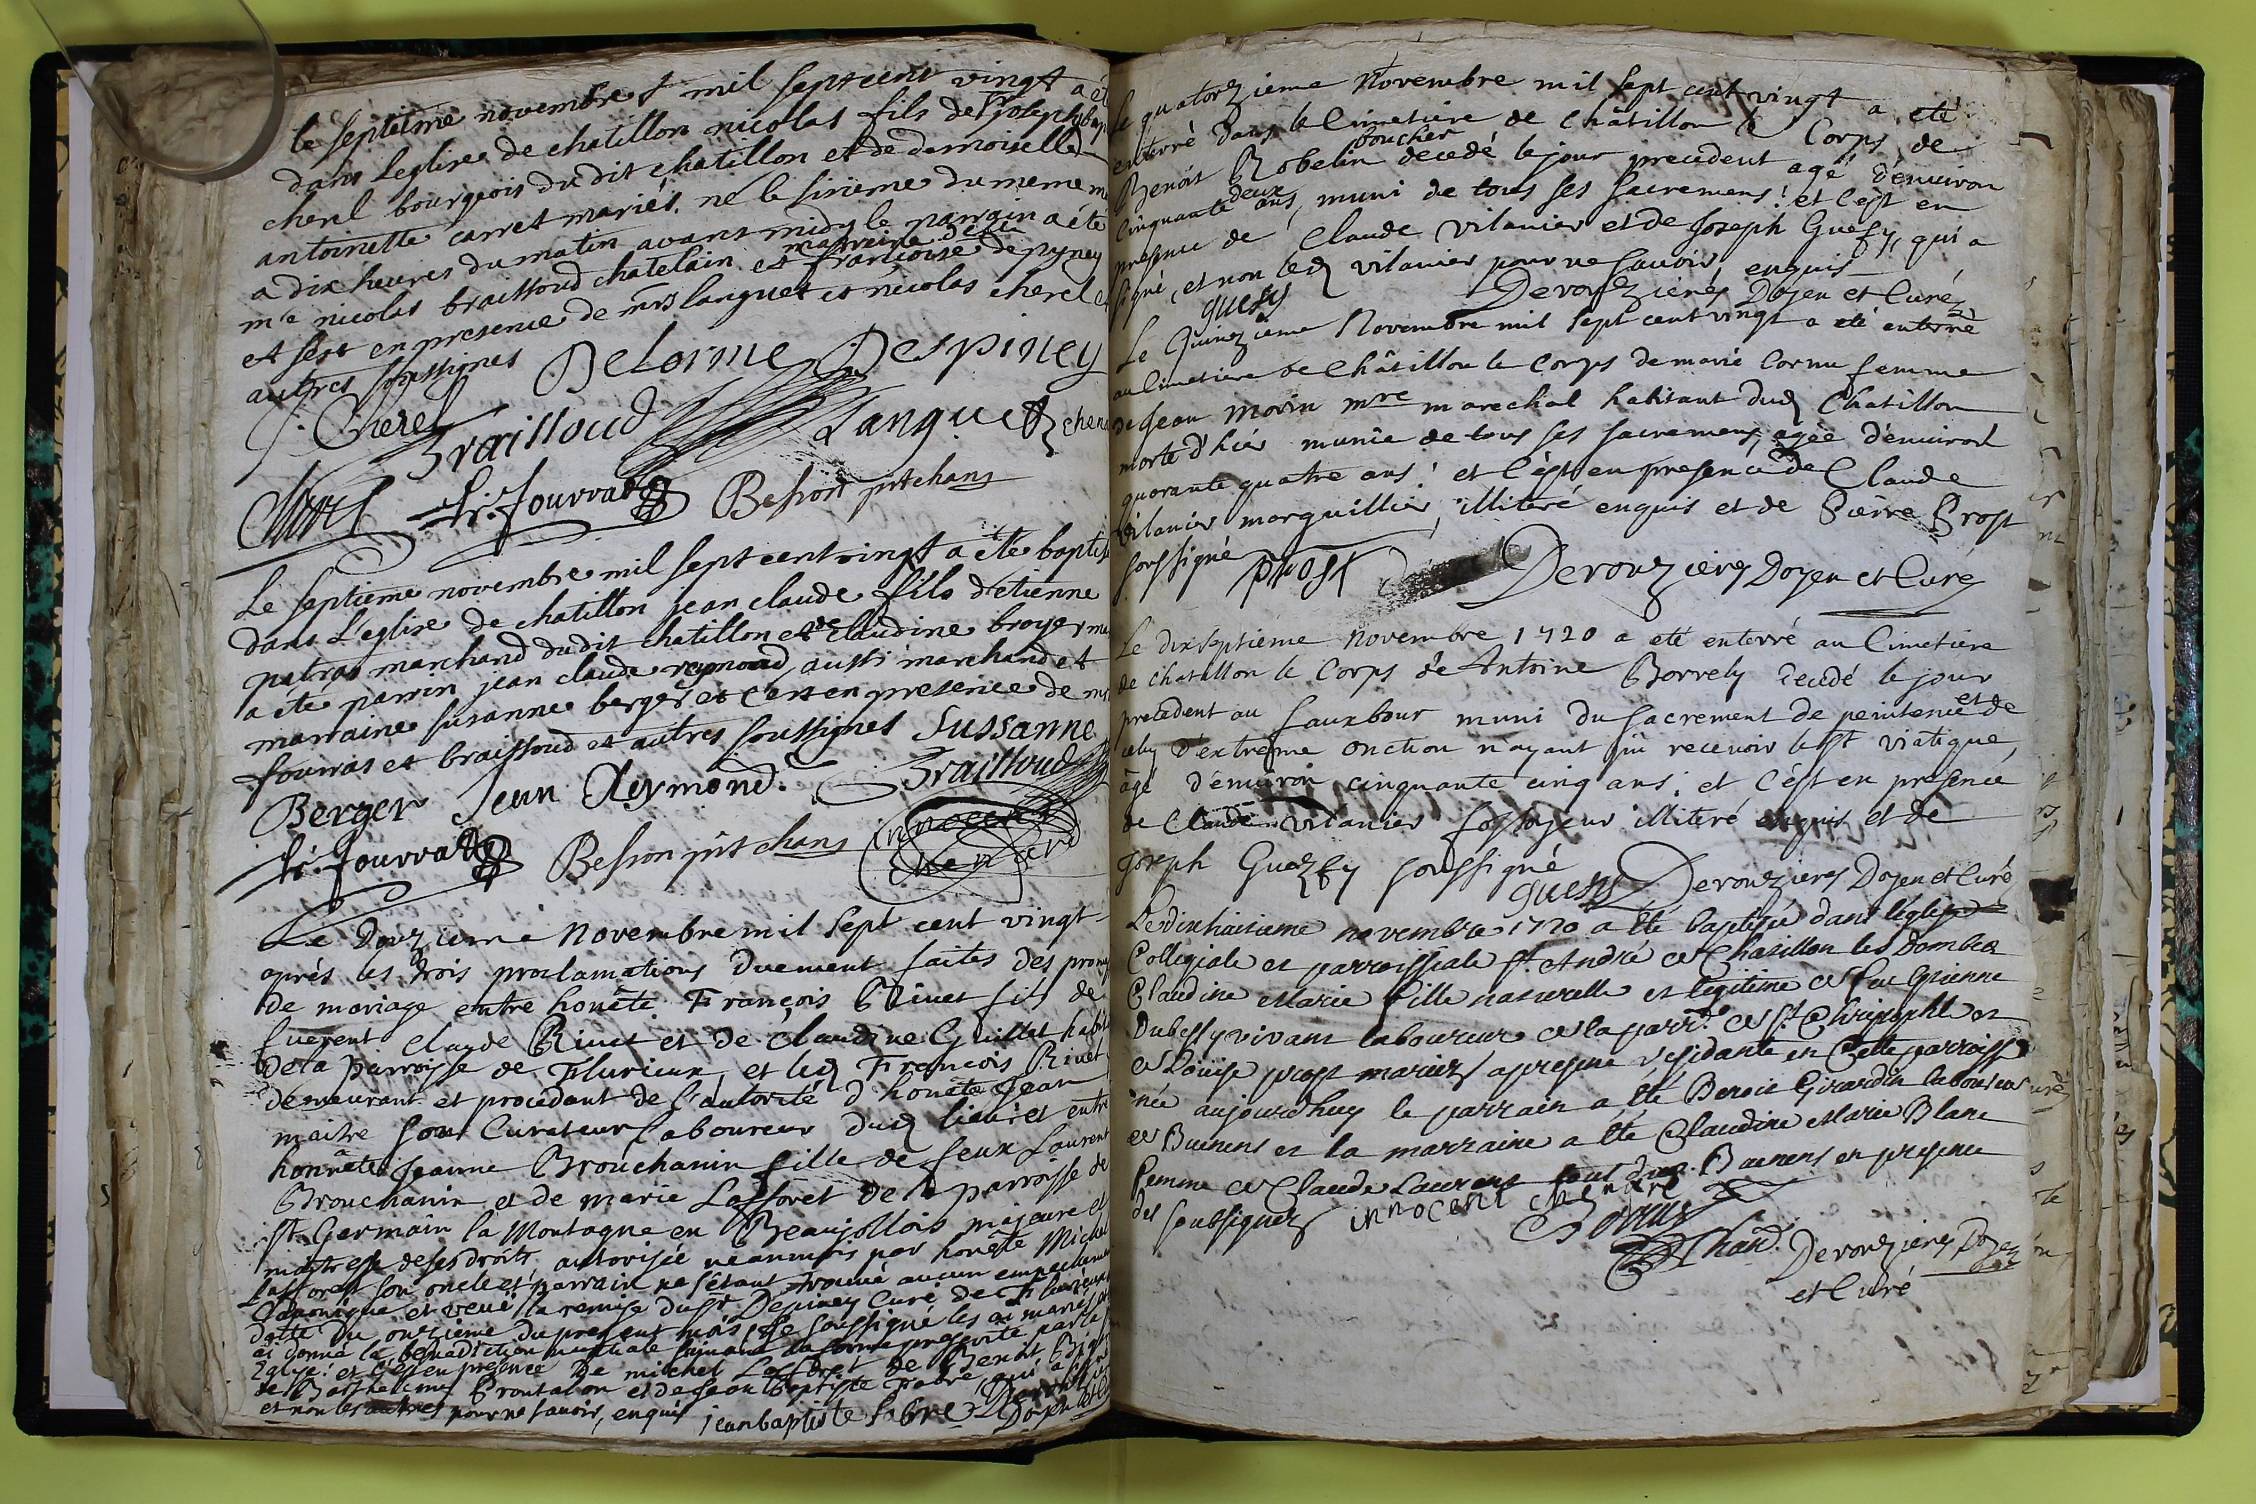 le septieme novembre mil sept cent vingt a été
dans l'eglise de chatillon nicolas fils de Sr joseph
cherel bourgeois dudit chatillon et de demoiselle
antoinette carret mariés. né le sixieme du meme
a dix heures du matin avant midy le parrain a été
mre nicolas braissoud chatelain et marreine delle francoise depyney
et sest en presence de mrs languet et nicolas cherel et
autres soussignes Delorme Despiney
J. Cherel Braissoud Languet
Cherel fr: fourrat Besson prt chans
Le septieme novembre mil sept cent vingt a été baptisé
dans L'eglise de chatillon jean claude fils d'etienne
patras marchand dudit chatillon et de claudine broyer
a été parrin jean claude reymond, aussi marchand et
marraine susanne berger et c'est en presence de
fourras et braissoud et autres soussignes Sussanne
Berger Jean Reymond. Braissoud
fr: fourrat Besson prt chans innocent chenard
Le Douzieme Novembre mil sept cent vingt
aprés les trois proclamations duement faites des
de mariage entre honête François Rivet fils de
fuerent Claude Rivet et de Claudine Guillet
de la parroisse de Flurieux, et led François Rivet
demeurant et procédant de l'autorité d'honête Jean
maitre son Curateur Laboureur dud lieu: et entre
honnête Jeanne Brouchanin fille de feux Laurent
Brouchanin et de marie Lafforet de la parroisse de
St. Germain la Montagne en Beaujollois majeure et
maitresse de ses droits, autorisée neanmoins par honête Michel
Lafforest son oncle et parrain ne s'étant trouvé aucun
Canonique et veüe la remise du Sr. Depiney Curé de Flurieux
datte du onzieme du present mois, Je soussigné les ai mariés
et donné la benediction nuptiale suivant la forme prescrite par
Eglise: et c'est en presence de michel Lafforet de Benoit
de Barthelemy Brontalon et de Jean Baptiste Fabre, qui a signé
et non les autres pour ne savoir, enquis jean baptiste fabre
Le quatorzieme Novembre mil sept cent vingt a eté
enterré dans le Cimetiere de Châtillon le Corps de
Benoit Robelin boucher decedé le jour precedent agé d'environ
Cinquante deux ans, muni de tous ses sacremens: et c'est en
presence de Claude Vilanier et de Joseph Guesy, qui a
signé, et non led vilanier pour ne savoir, enquis
guesy Derouzieres Doyen et Curé
Le Quinzieme Novembre mil sept cent vingt a eté enterré
au Cimetiere de Châtillon le Corps de marie Cornu femme
de Jean Morin mre marechal habitant dud Chatillon
morte d'hier munie de tous ses sacremens, agée d'environ
quarante quatre ans: et c'est en presence de Claude
Vilanier marguillier, illiteré enquis et de Pierre Prost
soussigné prost Derouzieres Doyen et Curé
Le dix septieme Novembre 1720 a eté enterré au Cimetiere
de chatillon le Corps de Antoine Borrely decedé le jour
precedent au fauxbour muni du sacrement de penitence et de
celuy d'extreme onction n'ayant pû recevoir le St Viatique,
âgé d'environ cinquante cinq ans: et c'est en presence
de Claude Vilanier fossoyeur illiteré enquis et de
Joseph Guezsy soussigné
guesy Derouzieres Doyen et Curé
Le dix huitieme novembre 1720 a été baptisée dans l'église
Collegiale et parroissiale St. André de Chatillon les Dombes
Claudine Marie fille naturelle et legitime de feu Etienne
Dubessy vivant laboureur de la parr. de St. Christophle et
de Louise prost mariez a present residante en cette parroisse
née aujourdhuy le parrain a été Benoit Girardin laboureur
de Buenens et la marraine a été Claudine Marie Blanc
femme de Claude Laurent tout dud. Buenens en presence
des soubsignez innocent chenard
Derouzieres Doyen
et Curé